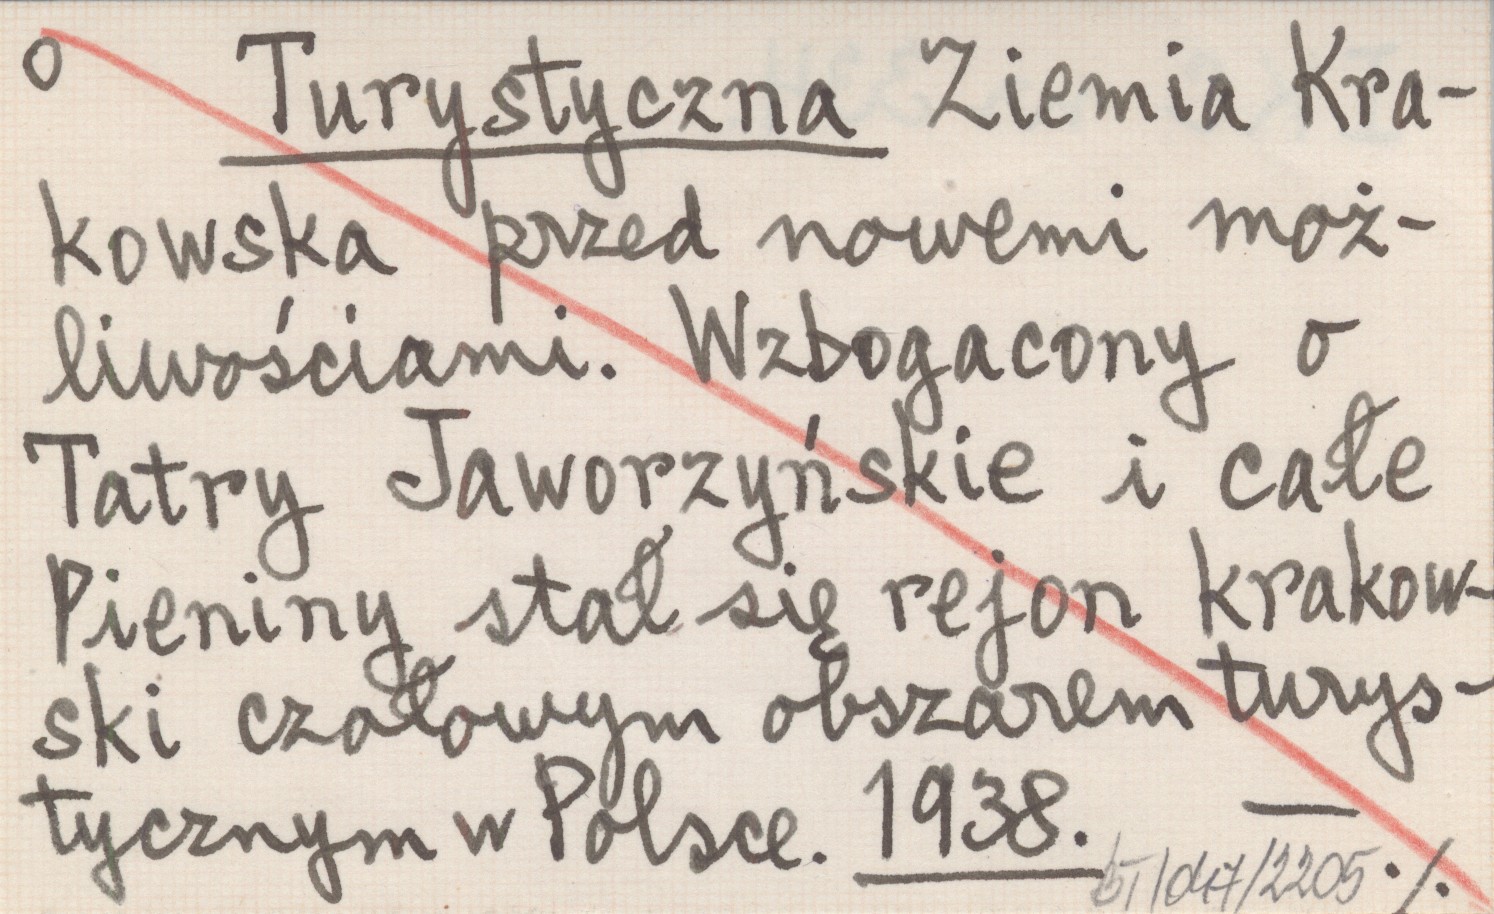 o Turystyczna Ziemia Kra-
kowska przed nowemi moż-
liwościami. Wzbogacony o
Tatry Jaworzyńskie i całe
Pieniny stał się rejon krakow-
ski czołowym obszarem turys-
tycznym w Polsce. 1938. —
/2205 ./.